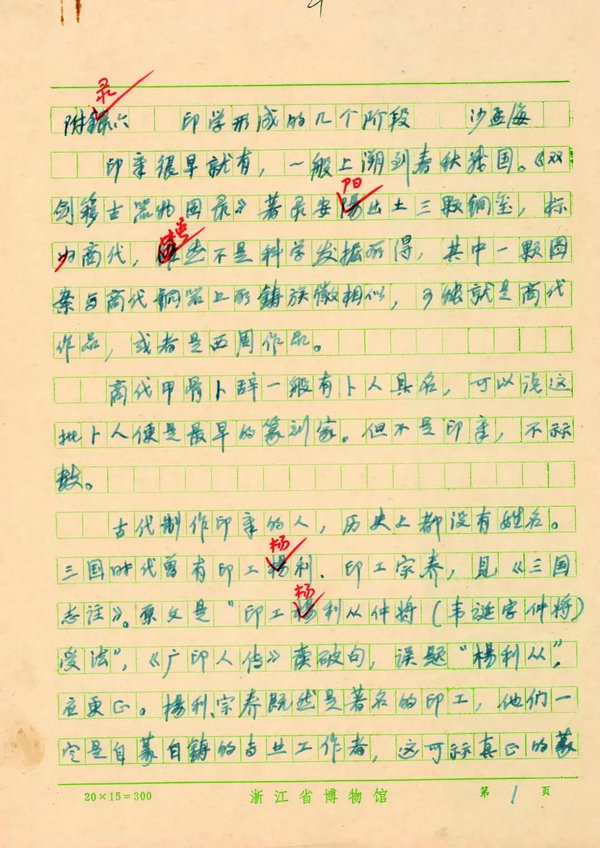 录
附錄六 印学形成的几个阶段 沙孟海
印章很早就有，一般上溯到春秋战国。《双
阳
剑簃古器物图录》著录安陽出土三颗铜玺，标
为商代，虽些不是科学发掘所得，其中一颗图
案与商代铜器上所铸族徽相似，可能就是商代
作品，或者是西周作品。
商代甲骨卜辞一般有卜人具名，可以说这
批卜人便是最早的篆刻家。但不是印章，不标
数。
古代制作印章的人，历史上都没有姓名。
杨
三国时代曾有印工楊利、印工宗养，见《三国
杨
志注》。原文是“印工楊利从仲将（韦诞字仲将）
受法”，《广印人传》读破句，误题“楊利从”，
应更正。楊利、宗养既然是著名的印工，他们一
定是自篆自铸的专业工作者，这可称真正的篆
20×15=300 浙江省博物馆 第1页